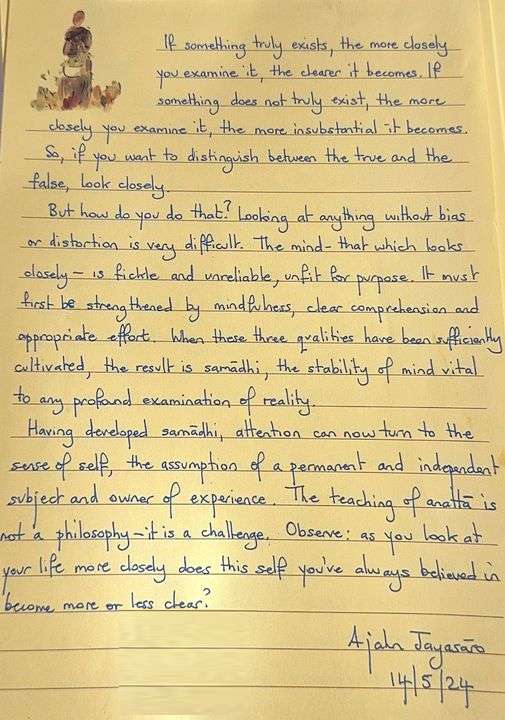 If something truly exists, the more closely
you examine it, the clearer it becomes. If
something does not truly exist, the more
closely you examine it, the more insubstantial it becomes.
So, if you want to distinguish between the true and the
false, look closely.
But how do you do that? Looking at anything without bias
or distortion is very difficult. The mind - that which looks
closely - is fickle and unreliable, unfit for purpose. It must
first be strengthened by mindfulness, clear comprehension and
appropriate effort. When these three qualities have been sufficiently
cultivated, the result is samādhi, the stability of mind vital
to any profound examination of reality.
Having developed samādhi, attention can now turn to the
sense of self, the assumption of a permanent and independent
subject and owner of experience. The teaching of anattā is
not a philosophy - it is a challenge. Observe: as you look at
your life more closely does this self you've always believed in
become more or less clear?
Ajahn Jayasāro
14/5/24